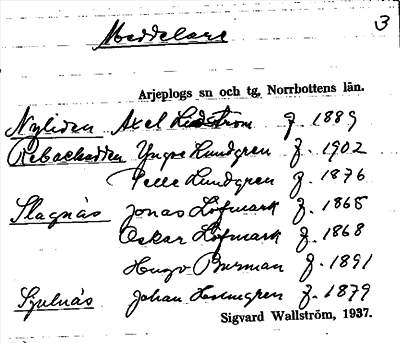 3
Meddelare
Arjeplogs sn och tg, Norrbottens län.
Nyliden Axel Lidström f. 1889
Rebackudden Yngve Lundgren f. 1902
Pelle Lundgren f. 1876
Slagnäs Jonas Löfmark f. 1865
Oskar Löfmark f. 1868
Hugo Burman f. 1891
Sjulnäs Johan Holmgren f. 1879
Sigvard Wallström, 1937.